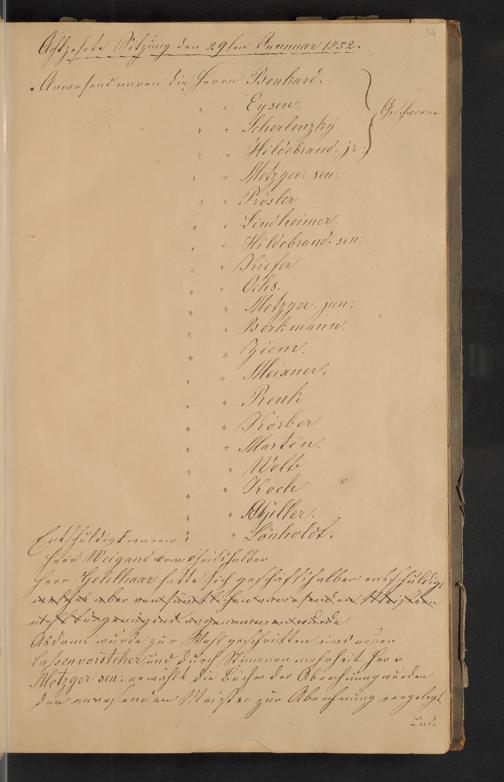 Achtzehnte Sitzung den 29ten Januar 1852.
Anwesend waren die Herrn Benhard.
" " Eysen.
" " Scherlenzky
" " Hildebrand. jr:
Geschworne
" " Metzger. sen:
" " Prösler
" " Lindheimer
" " Hildebrand. sen:
" " Kiefer
" " Ochs.
" " Metzger. jun:
" " Berkmann.
" " Ziem.
" " Meixner.
" " Renk
" " Körber
" " Martin.
" " Wolb
" " Koch
" " Müller.
" " Lönholdt.
Entschuldigt waren:
Herr Weigand krankheitshalber
Herr hatte sich geschäftshalber entschuldigt
aber von sämtlichen anwesenden Meistern
nicht angenommen wurde
Alsdann wurde zur Wahl geschritten eines neuen
Cassenvorsteher und durch Stimmenmehrheit Herr
Metzger sen: erwählt die Bücher der Abrechnung wurden
den anwesenden Meister zur Abrechnung vorgelegt
und